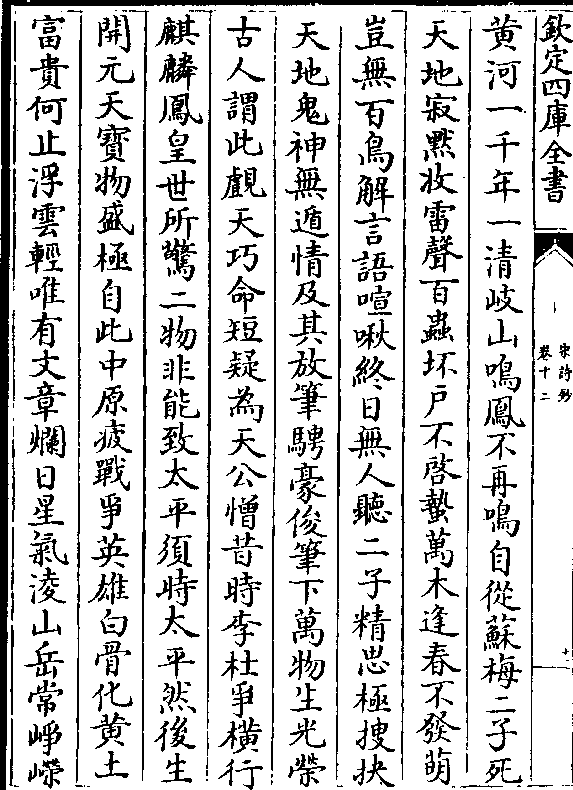 欽定四庫全書
宋詩鈔
卷十二
十
黄河一千年一清岐山鳴鳳不再鳴自從蘇梅二子死
天地寂黙收雷聲百蟲坏戸不啓蟄萬木逢春不發萌
豈無百鳥解言語喧啾終日無人聽二子精思極搜抉
天地鬼神無遁情及其放筆騁豪俊筆下萬物生光榮
古人謂此覰天巧命短疑為天公憎昔時李杜爭横行
麒麟鳳皇世所驚二物非能致太平須時太平然後生
開元天寶物盛極自此中原疲戰爭英雄白骨化黄土
富貴何止浮雲輕唯有文章爛日星氣淩山岳常崢嶸